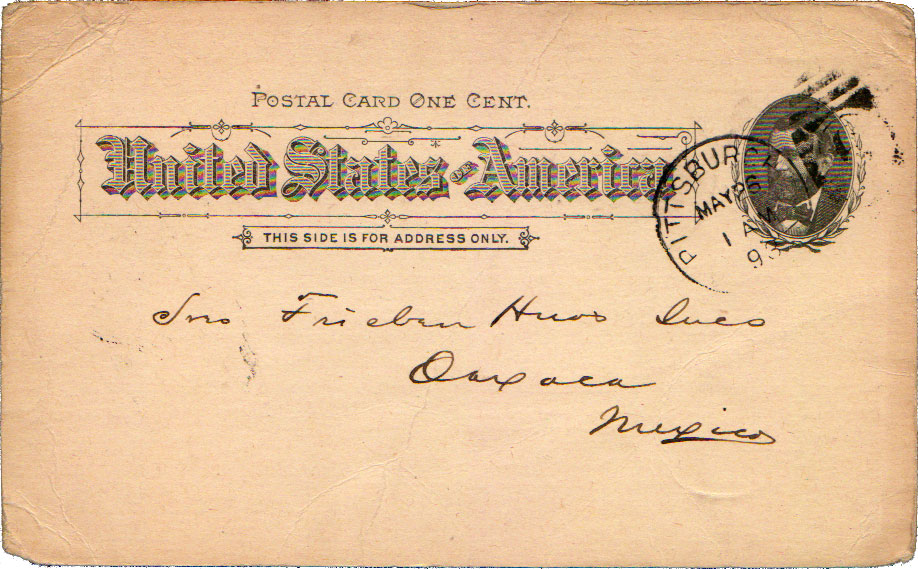 POSTAL CARD ONE CENT.
United States of America
THIS SIDE IS FOR ADDRESS ONLY.
PITTSBUR
MAY 26
1 AM
93
Frieben Hnos Sucs
Oaxaca
Mexico